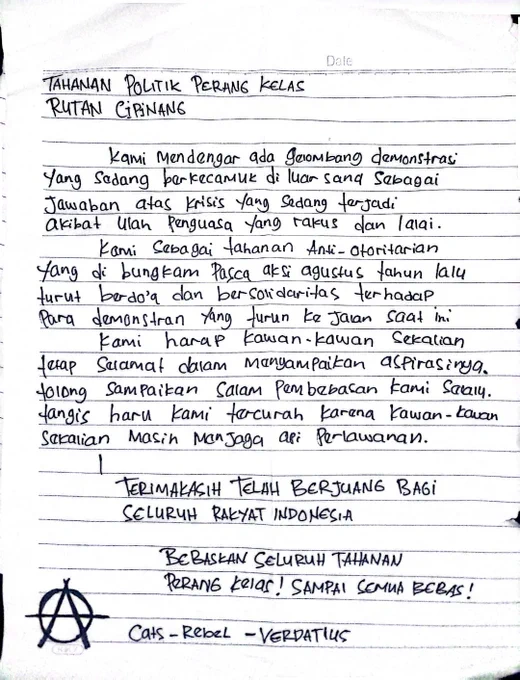 Date
TAHANAN POLITIK PERANG KELAS
RUTAN CIPINANG
Kami Mendengar ada gelombang demonstrasi
yang sedang berkecamuk di luar sana sebagai
Jawaban atas krisis yang sedang terjadi
akibat ulah Penguasa yang rakus dan lalai.
Kami sebagai tahanan Anti-otoritarian
yang di bungkam Pasca aksi agustus tahun lalu
turut berdo'a dan bersolidaritas terhadap
Para demonstran yang turun ke jalan saat ini
Kami harap kawan-kawan sekalian
tetap selamat dalam menyampaikan aspirasinya.
tolong sampaikan salam Pembebasan kami selalu.
tangis haru kami tercurah karena kawan-kawan
sekalian Masih Menjaga api Perlawanan.
TERIMAKASIH TELAH BERJUANG BAGI
SELURUH RAKYAT INDONESIA
BEBASKAN SELURUH TAHANAN
PERANG KELAS! SAMPAI SEMUA BEBAS!
Cats-Rebel - VERDATIUS